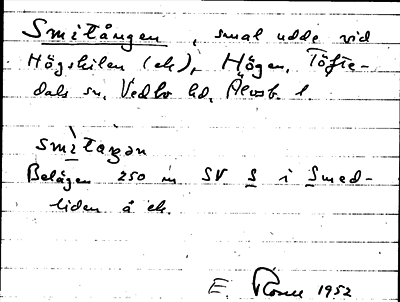 Smitången, smal udde vid
Högskilen (ek), Högen, Töfte-
dals sn, Vedbo hd, Älvsb. l.
smìtáŋən
Belägen 250 m SV S i Smed-
liden å ek.
E 1952